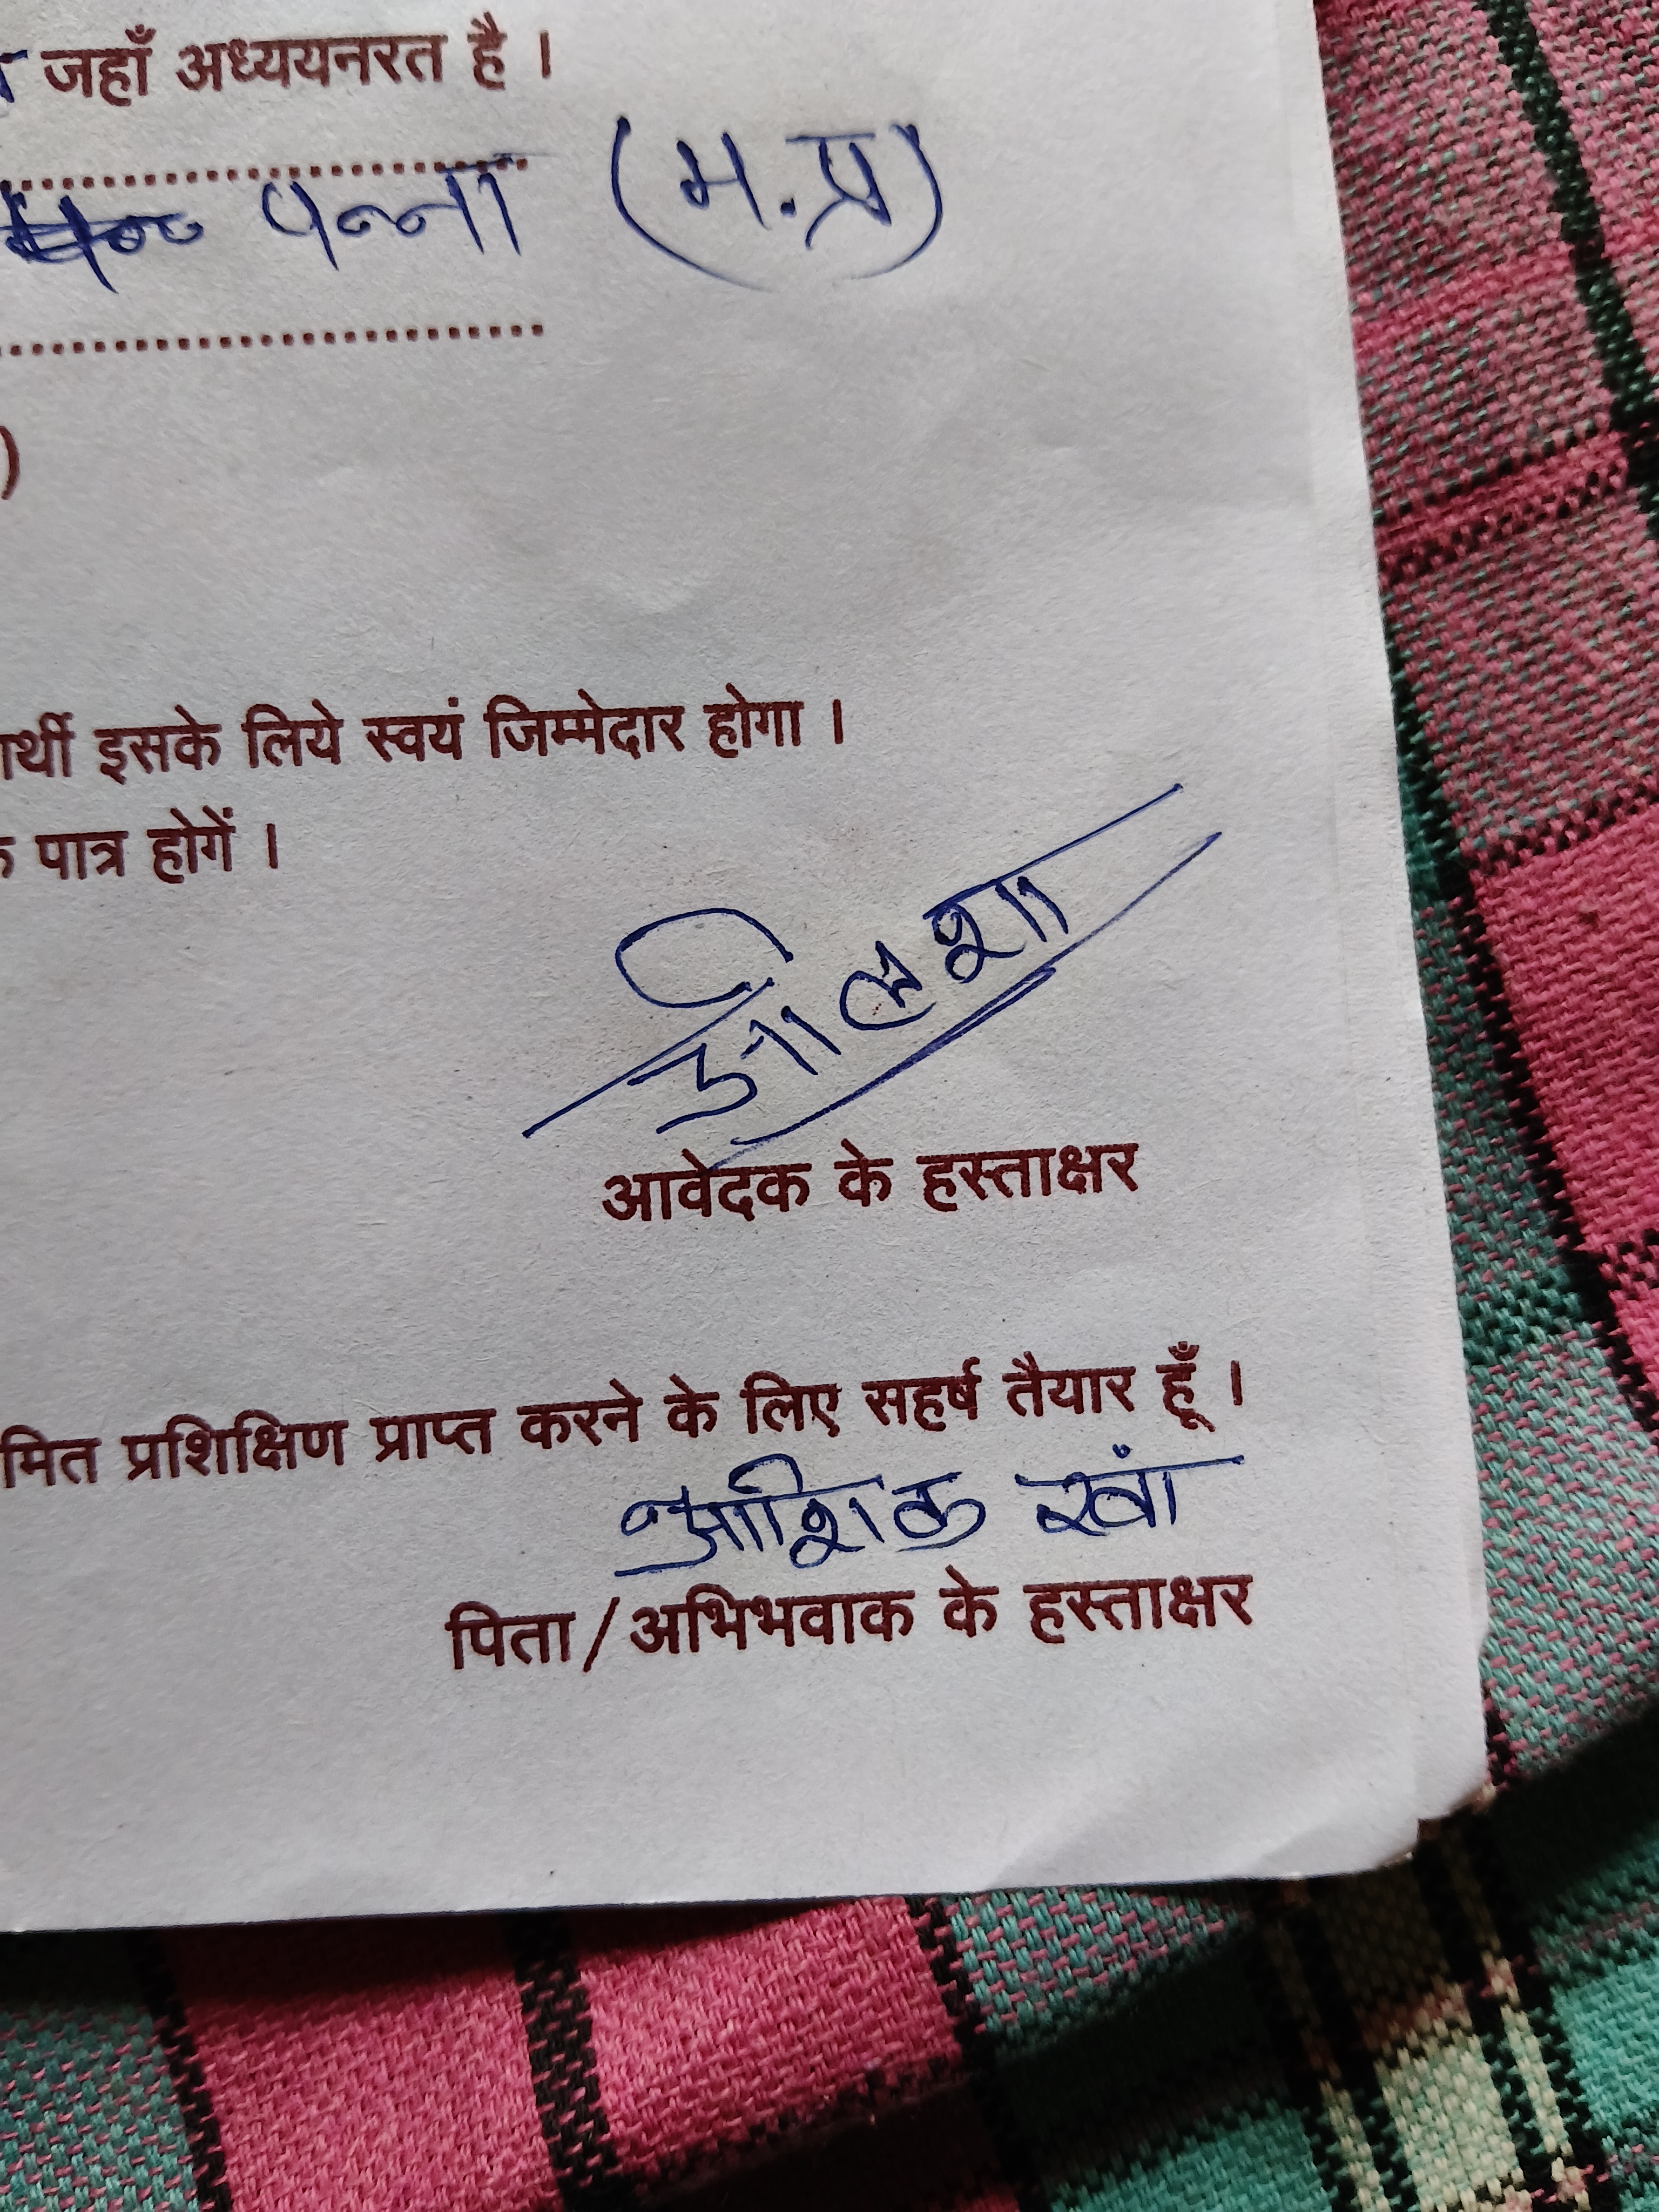 जहाँ अध्ययनरत है ।
पन्ना (म.प्र)
)
इसके लिये स्वयं जिम्मेदार होगा ।
पात्र होगें ।
आवेदक के हस्ताक्षर
मित प्रशिक्षिण प्राप्त करने के लिए सहर्ष तैयार हूँ ।
आशिक खां
पिता/अभिभवाक के हस्ताक्षर